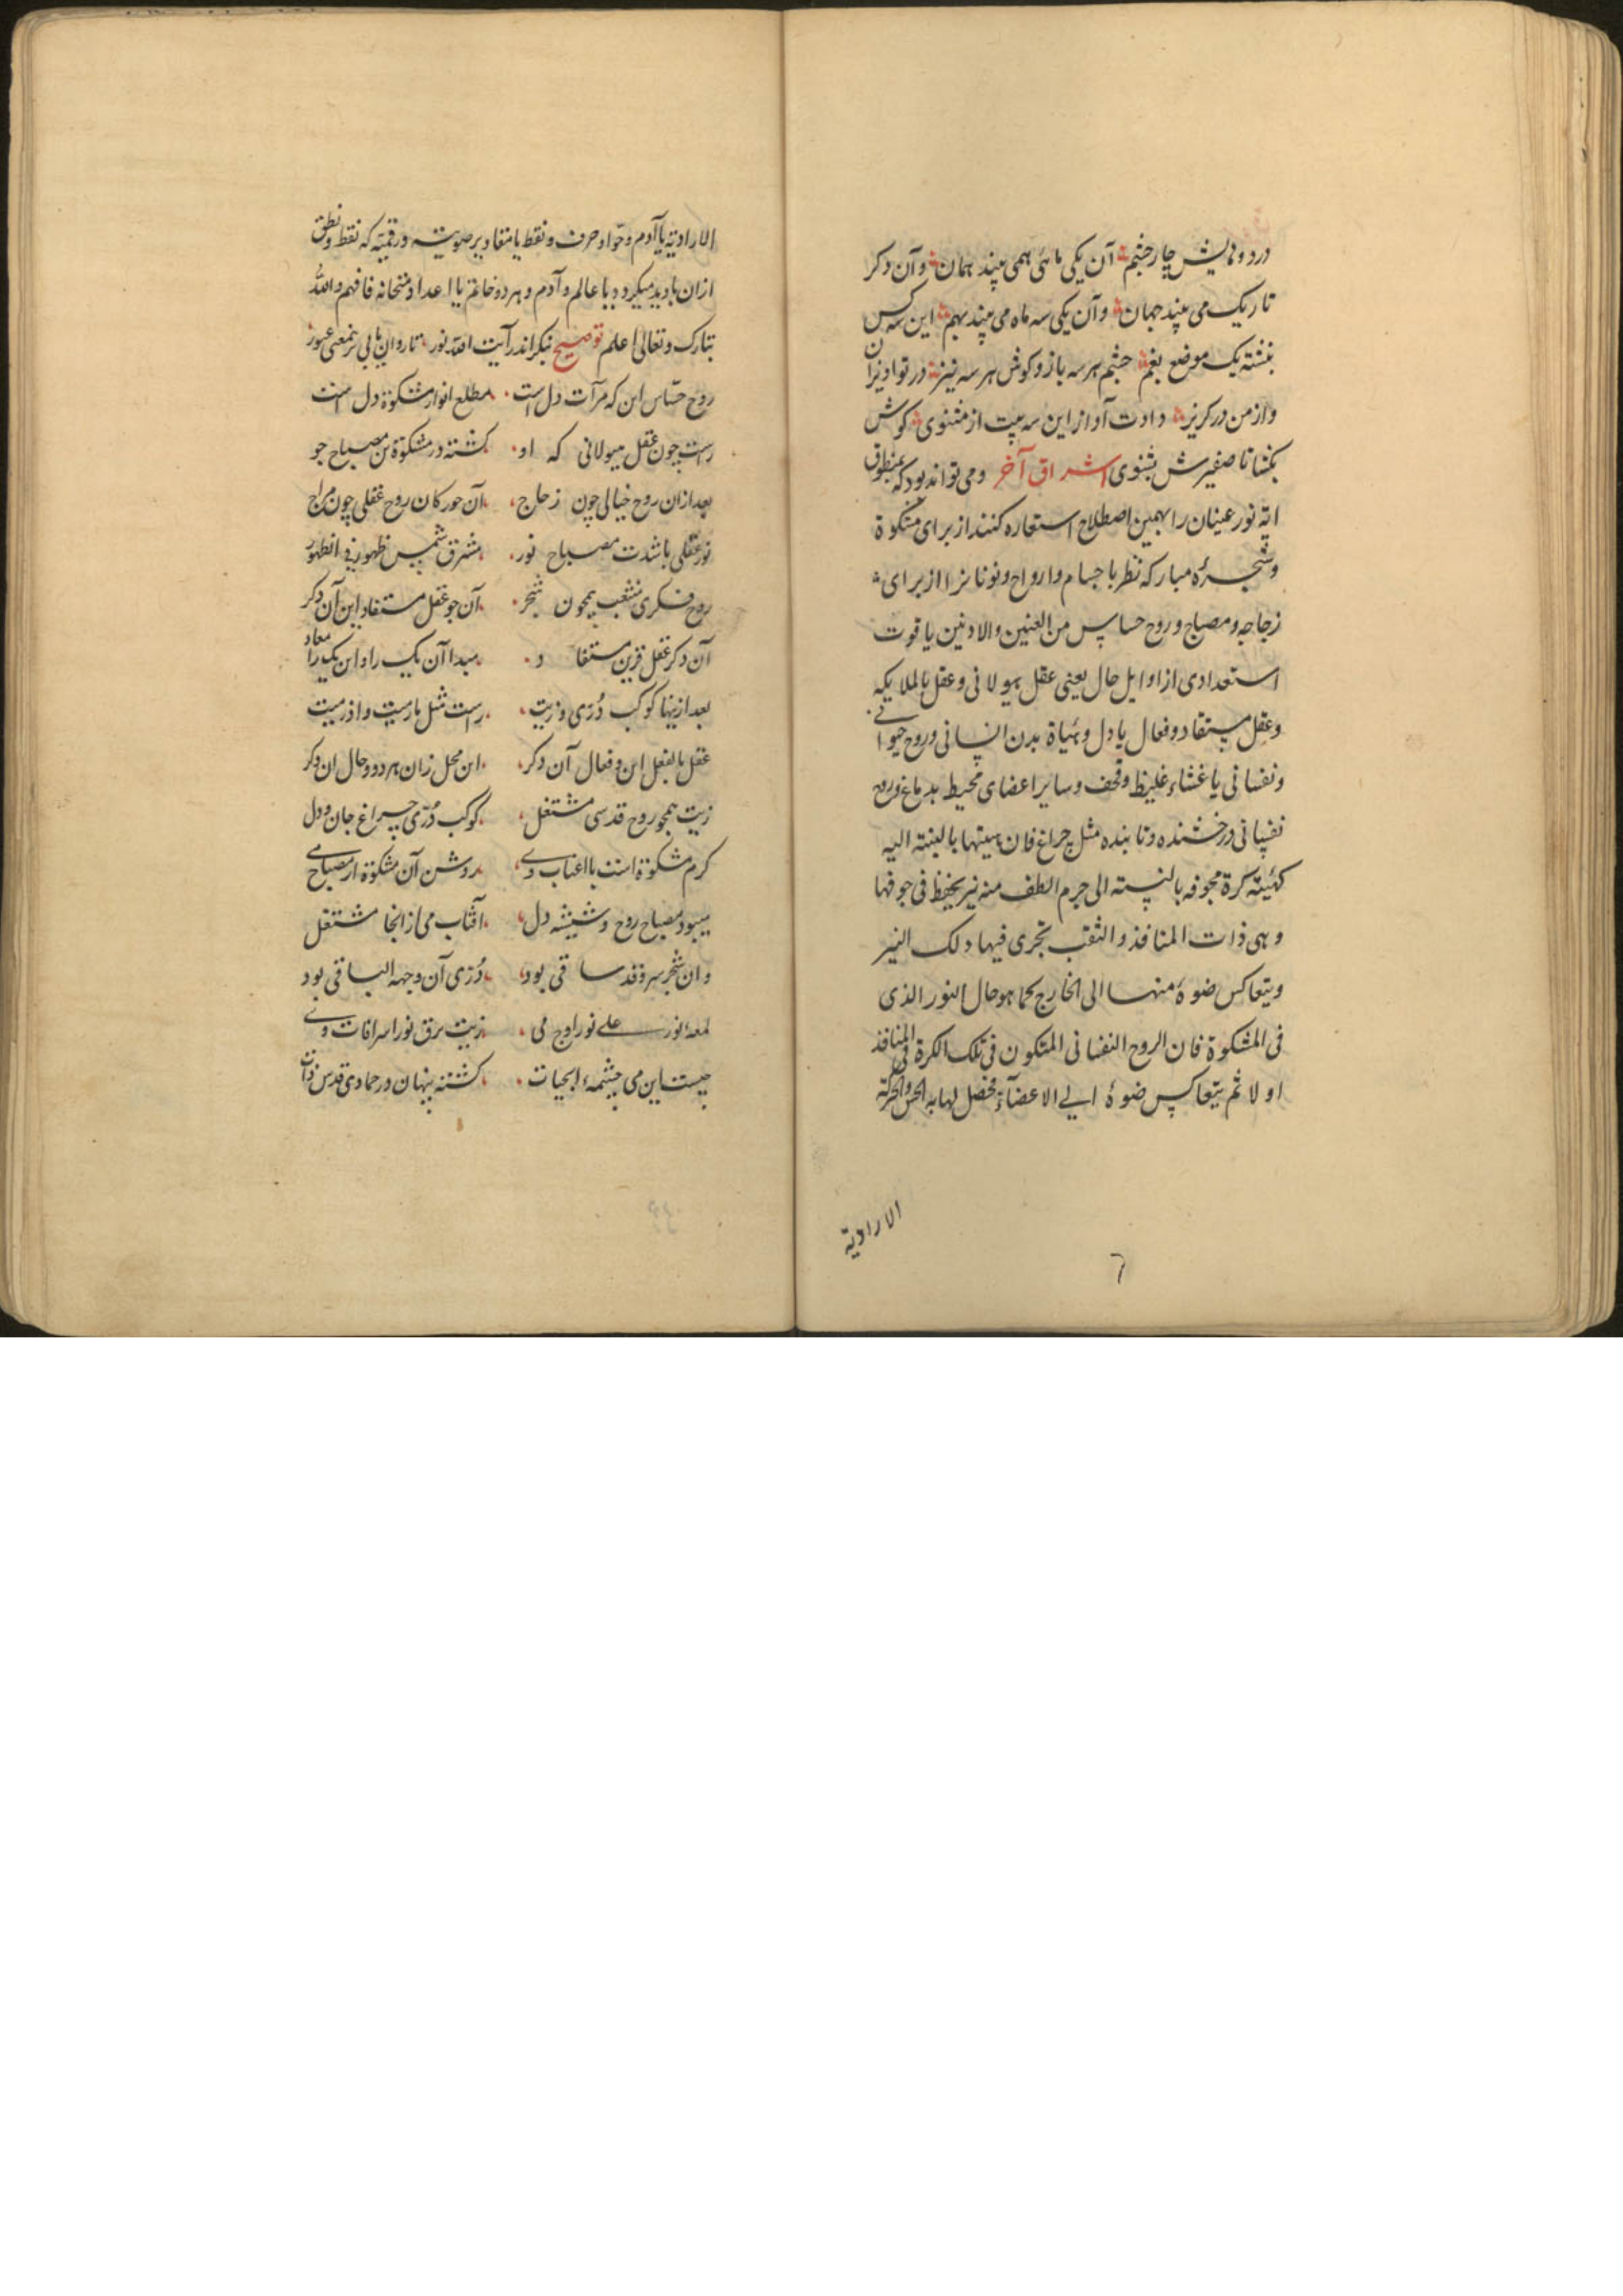 در دو دیدش چار چشم آن یکی ماهی همی بیند عیان و آن دکر
تاریک می بیند جهان و آن یکی سه ماه می بیند بهم این سه کس
بنشسته یک موضع بغم چشم هر سه باز و کوش هر سه تیز در تو آویزان
و از من در کریز دادت آواز این سه بیت از مثنوی کوش
بکشا تا صفیرش بشنوی اشراق آخر و می تواند بود که بمنطوق
آیه نور عینان را بهمین اصطلاح استعاره کنند از برای مشکوة
و شجره مبارکه نظر باجسام و ارواح و نونانرا از برای
زجاجه و مصباح و روح حساس من العینین والاذنین یا قوت
استعدادی از اوایل حال یعنی عقل هیولانی و عقل بالملایکه
و عقل مستفاد و فعال یا دل و هیاة بدن انسانی و روح حیوانی
و نفسانی یا غشاء غلیظ و قحف و سایر اعضای محیط بدماغ و روح
نفسانی درخشنده و تابنده مثل چراغ فان هیئتها بالنسبته الیه
کهیئة کرة مجوفه بالنسبته الی جرم الطف منه نیر یحفظ فی جوفها
و هی ذات المنافذ و الثقب تجری فیها ذلک النیر
و یتعاکس ضوءه منها الی الخارج کما هو حال النور الذی
فی المشکوة فان الروح النفسانی المتکون فی تلک الکرة فی المنافذ
اولا ثم یتعاکس ضوءه الی الاعضآء فحصل لها به الحس والحرکة
الارادیة
٦
الارادیته یا آدم و حوا و حرف و نقط یا مقادیر صوتیته و رقمیته که نقط و نطق
ازان بادید میکردد یا عالم و آدم و هر دو خاتم یا اعداد متحانه فافهم والله
تبارک و تعالی اعلم توضیح بنکر اندر آیت الله نور تا روان یابی بر معنی عبور
روح حساس این که مرآت دل است مطلع انوار مشکوة دل است
راست چون عقل هیولانی که او کشته در مشکوة تن مصباح جو
بعد ازان روح خیالی چون زجاج آن جو رکان روح عقلی چون سراج
نور عقلی باشدت مصباح نور مشرق شمس ظهور فی الظهور
روح فکری منشعب همچون شجر آن جو عقل مستفاد این آن دکر
آن دکر عقل قرین مستفاد مبدا آن یک را و این یک را معاد
بعد ازینها کوکب دری و زیت راست مثل مارمیت و اذ رمیت
عقل بالفعل این و فعال آن دکر این محل زان هر دو و حال ان دکر
زیت همچو روح قدسی مشتعل کوکب دری چراغ جان و دل
کرم مشکوة است با اعناب وی روشن آن مشکوة از مصباح می
میبود مصباح روح و شیشه دل آفتاب می از انجا مشتعل
و ان شجر سرو قد ساقی بود دری آن وجهه الباقی بود
لمعه نور علی نور اوج می زیت برق نور اسراقات وی
چیست این می چشمه ابحیات کشته پنهان در حمادی قدس ذات